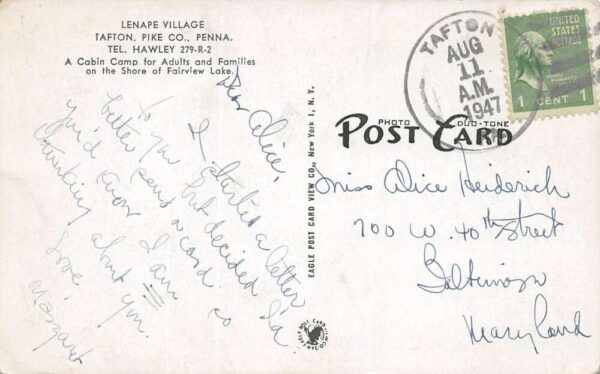 LENAPE VILLAGE
TAFTON, PIKE CO., PENNA.
TEL. HAWLEY 279-R-2
A Cabin Camp for Adults and Families
on the Shore of Fairview Lake.
Dear Alice,
I started a letter
to you but decided I'd
better send a card so
you'd know I am
thinking about you.
Love,
Margaret
EAGLE POST CARD VIEW CO., New York 1, N. Y.
TAFTON
AUG
11
A.M.
1947
UNITED
STATES
POSTAGE
1 CENT 1
PHOTO DUO-TONE
POST CARD
Miss Alice Heiderich
700 W. 40th Street
Baltimore
Maryland